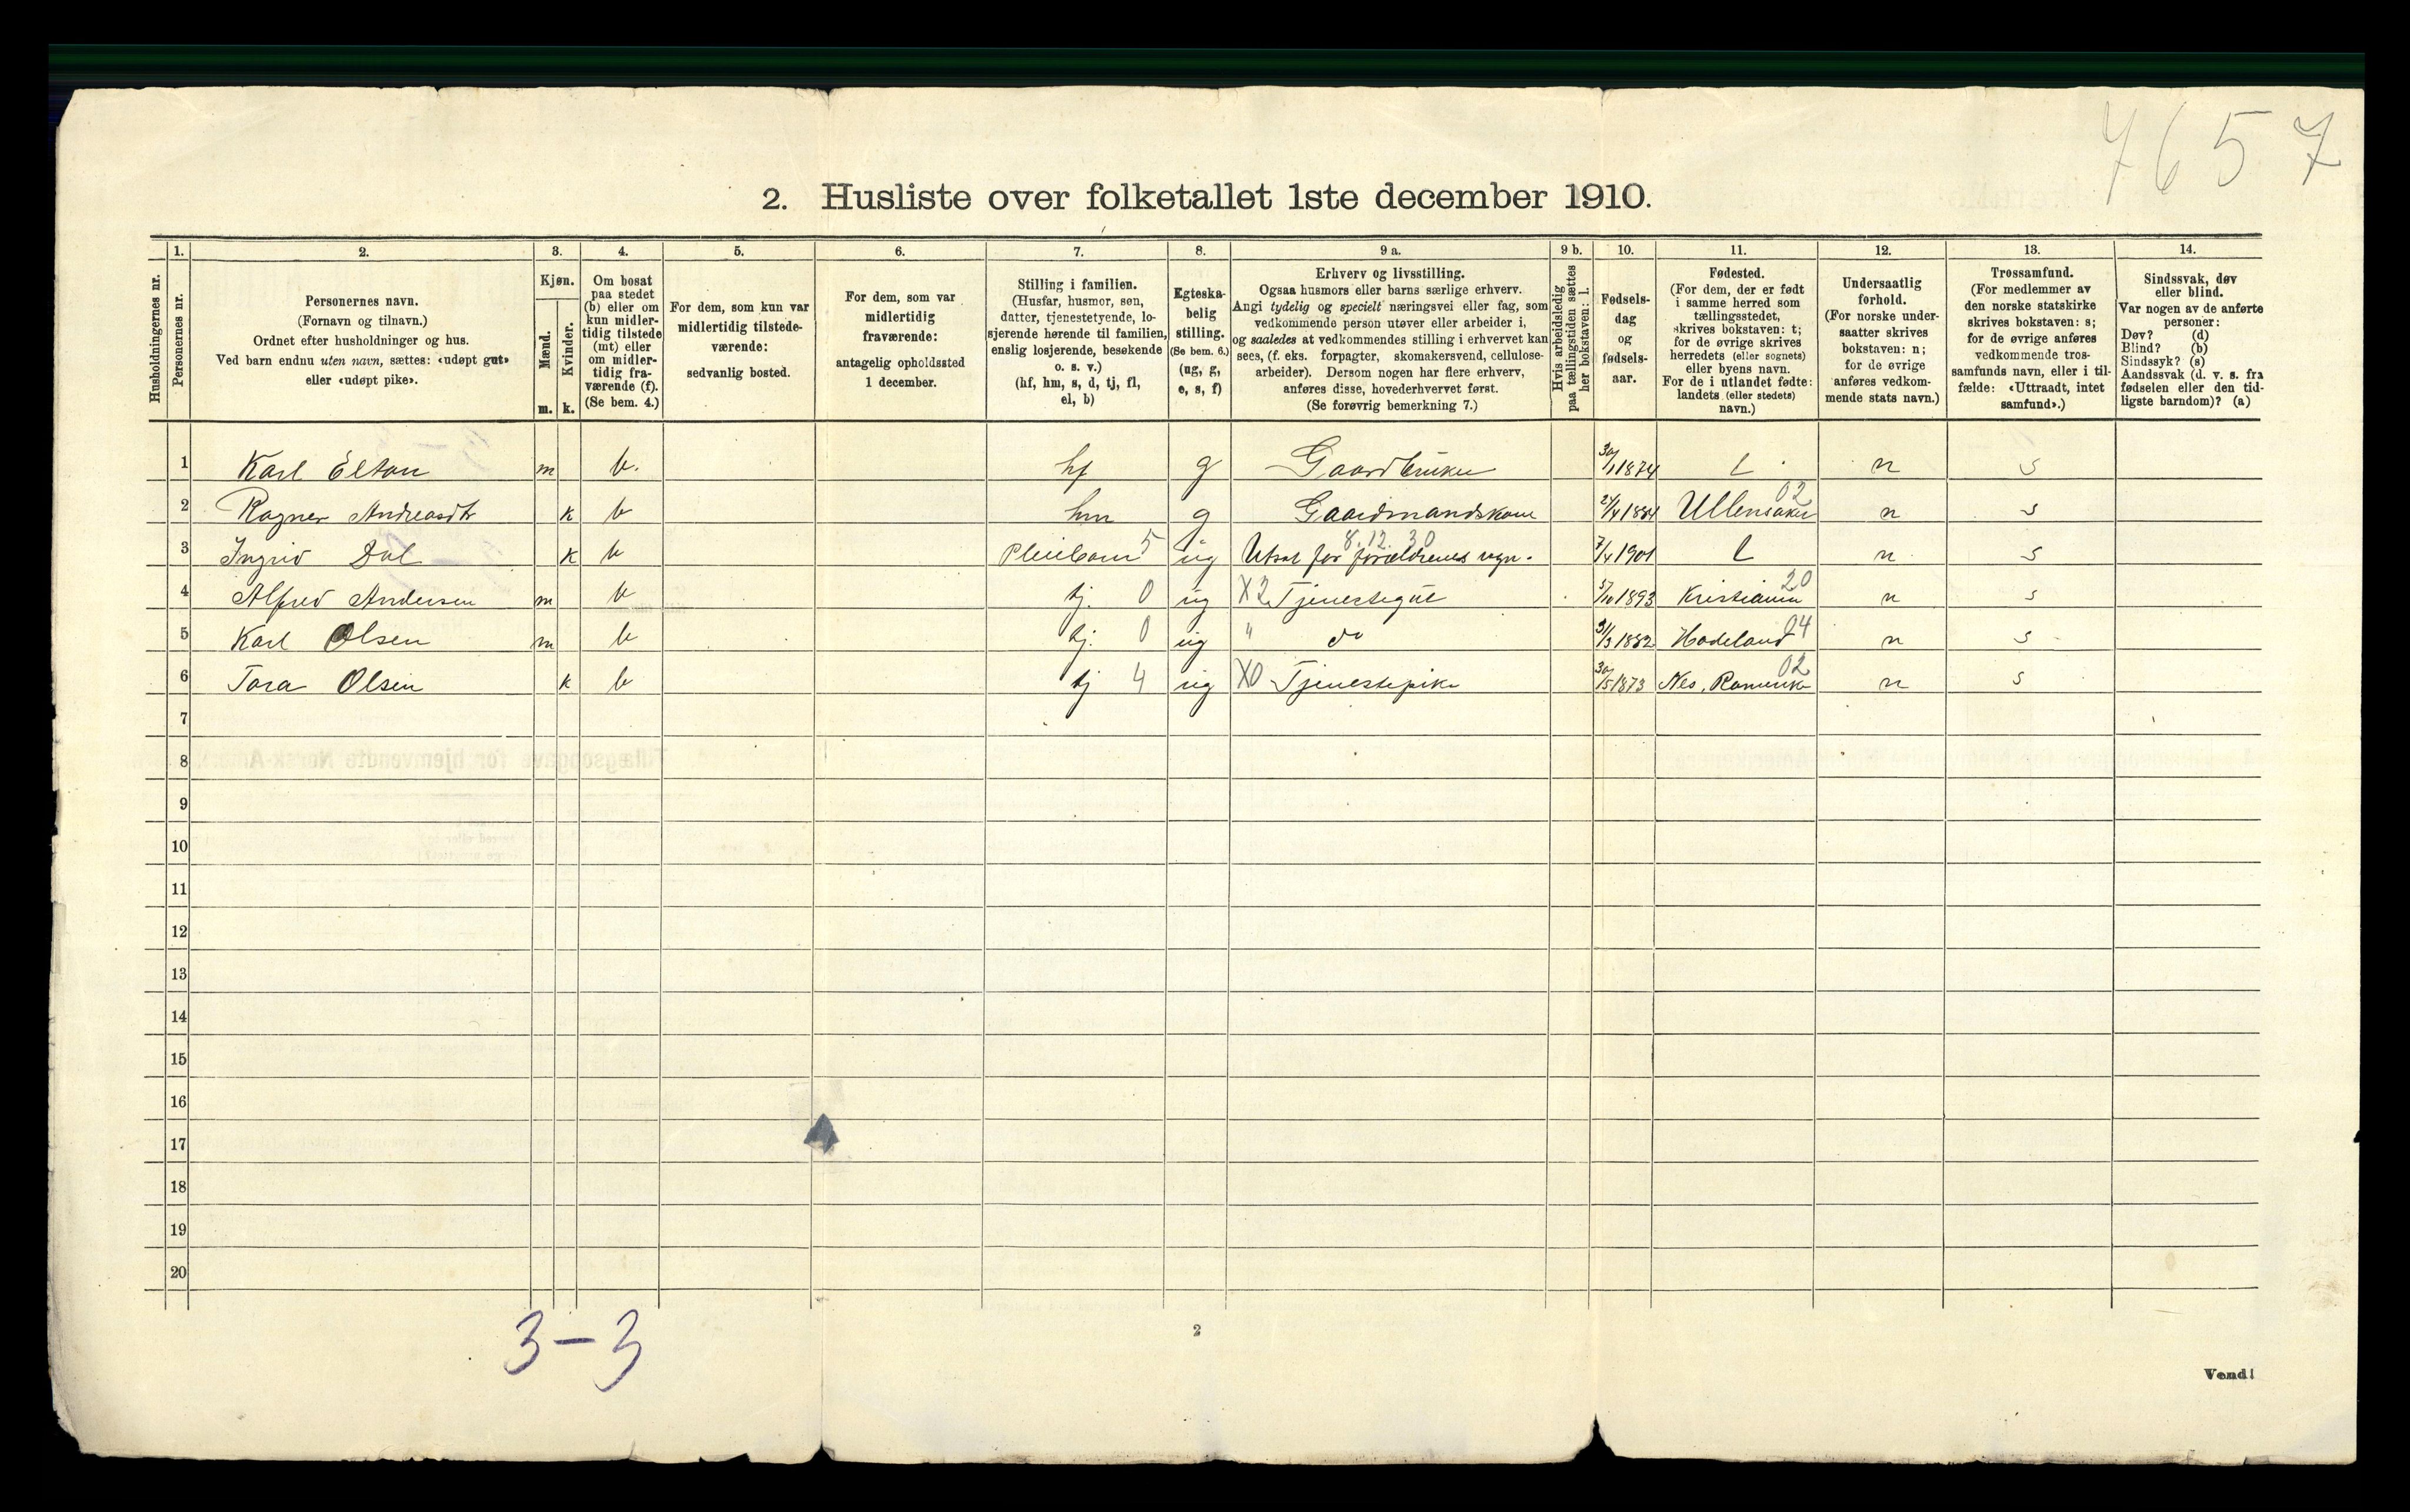 7657
2. Husliste over folketallet 1ste december 1910.
Husholdningernes nr.
1. Personernes nr.
2. Personernes navn. (Fornavn og tilnavn.) Ordnet efter husholdninger og hus. Ved barn endnu uten navn, sættes: «udøpt gut» eller «udøpt pike».
3. Kjøn. Mænd. m. Kvinder. k.
4. Om bosat paa stedet (b) eller om kun midler-tidig tilstede (mt) eller om midler-tidig fra-værende (f). (Se bem. 4.)
5. For dem, som kun var midlertidig tilstede-værende: sedvanlig bosted.
6. For dem, som var midlertidig fraværende: antagelig opholdssted 1 december.
7. Stilling i familien. (Husfar, husmor, søn, datter, tjenestetyende, lo-sjerende hørende til familien, enslig losjerende, besøkende o. s. v.) (hf, hm, s, d, tj, fl, el, b)
8. Egteska-belig stilling. (Se bem. 6.) (ug, g, e, s, f)
9 a. Erhverv og livsstilling. Ogsaa husmors eller barns særlige erhverv. Angi tydelig og specielt næringsvei eller fag, som vedkommende person utøver eller arbeider i, og saaledes at vedkommendes stilling i erhvervet kan sees, (f. eks. forpagter, skomakersvend, cellulose-arbeider). Dersom nogen har flere erhverv, anføres disse, hovederhvervet først. (Se forøvrig bemerkning 7.)
9 b. Hvis arbeidsledig paa tællingstiden sættes her bokstaven: l.
10. Fødsels-dag og fødsels-aar.
11. Fødested. (For dem, der er født i samme herred som tællingsstedet, skrives bokstaven: t; for de øvrige skrives herredets (eller sognets) eller byens navn. For de i utlandet fødte: landets (eller stedets) navn.)
12. Undersaatlig forhold. (For norske under-saatter skrives bokstaven: n; for de øvrige anføres vedkom-mende stats navn.)
13. Trossamfund. (For medlemmer av den norske statskirke skrives bokstaven: s; for de øvrige anføres vedkommende tros-samfunds navn, eller i til-fælde: «Uttraadt, intet samfund».)
14. Sindssvak, døv eller blind. Var nogen av de anførte personer: Døv? (d) Blind? (b) Sindssyk? (s) Aandssvak (d. v. s. fra fødselen eller den tid-ligste barndom)? (a)
1 Karl Elton m b. hf g Gaardbruker 30/1 1874 t n s
2 Ragna Andreasdtr k b hm g Gaardmandskone 24/4 1884 Ullensaker 02 n s
3 Ingrid Dal k b Pleiebarn 5 ug Utsat for forældrenes regn. 8.12.30 7/4 1901 t n s
4 Alfred Andersen m b tj. 0 ug X2 Tjenestegut 5/10 1893 Kristiania 20 n s
5 Karl Olsen m b tj. 0 ug " do 31/3 1882 Hadeland 04 n s
6 Tora Olsen k b tj 4 ug X0 Tjenestepike 30/5 1873 Nes, Romerike 02 n s
7
8
9
10
11
12
13
14
15
16
17
18
19
20
3 - 3
2
Vend!